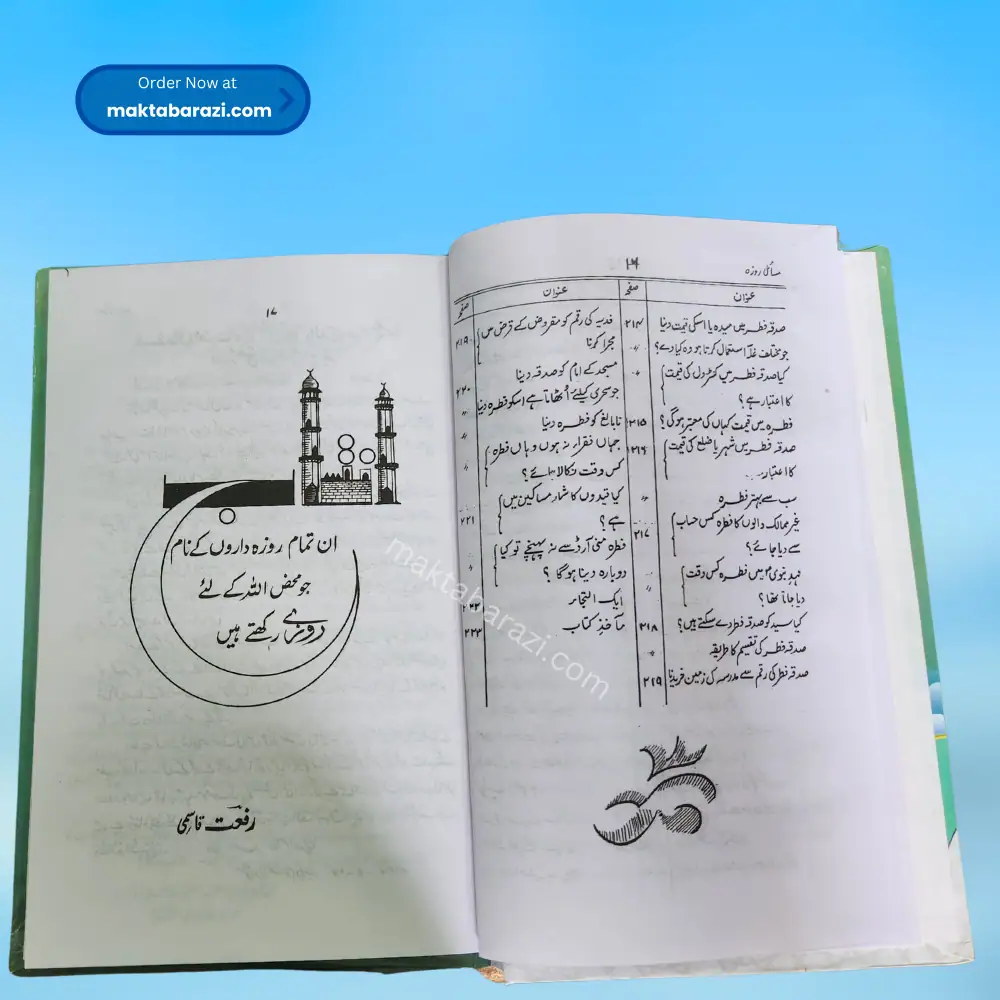 Order Now at
maktabarazi.com
مسائل روزہ
۱۶
عنوان
صفحہ
صدقہ فطر میں میدہ یا اسکی قیمت دینا
۲۱۴
جو مختلف غلّہ استعمال کرتا ہو وہ کیا دے؟
〃
کیا صدقہ فطر میں کنٹرول کی قیمت
کا اعتبار ہے؟
〃
فطرہ میں قیمت کہاں کی معتبر ہوگی؟
۲۱۵
صدقہ فطر میں شہر یا ضلع کی قیمت
کا اعتبار
۲۱۶
سب سے بہتر فطرہ
〃
غیر ممالک والوں کا فطرہ کس حساب
سے دیا جائے؟
۲۱۷
عہد نبویؐ میں فطرہ کس وقت
دیا جاتا تھا؟
〃
کیا سید کو صدقہ فطر دے سکتے ہیں؟
۲۱۸
صدقہ فطر کی تقسیم کا طریقہ
〃
صدقہ فطر کی رقم سے مدرسہ کی زمین خریدنا
۲۱۹
عنوان
صفحہ
فدیہ کی رقم کو مقروض کے قرض میں
مجرا کرنا
۲۱۹
مسجد کے امام کو صدقہ دینا
۲۲۰
جو سحری کیلئے اُٹھاتا ہے اسکو فطرہ دینا
〃
نابالغ کو فطرہ دینا
〃
جہاں فقراء نہ ہوں وہاں فطرہ
کس وقت نکالا جائے؟
〃
کیا قیدیوں کا شمار مساکین میں
ہے؟
۲۲۱
فطرہ منی آرڈر سے نہ پہنچے تو کیا
دوبارہ دینا ہوگا؟
〃
ایک التجا
۲۲۲
مآخذِ کتاب
۲۲۳
۱۷
ان تمام روزہ داروں کے نام
جو محض اللہ کے لئے
روزے رکھتے ہیں
رفعت قاسمی
maktabarazi.com